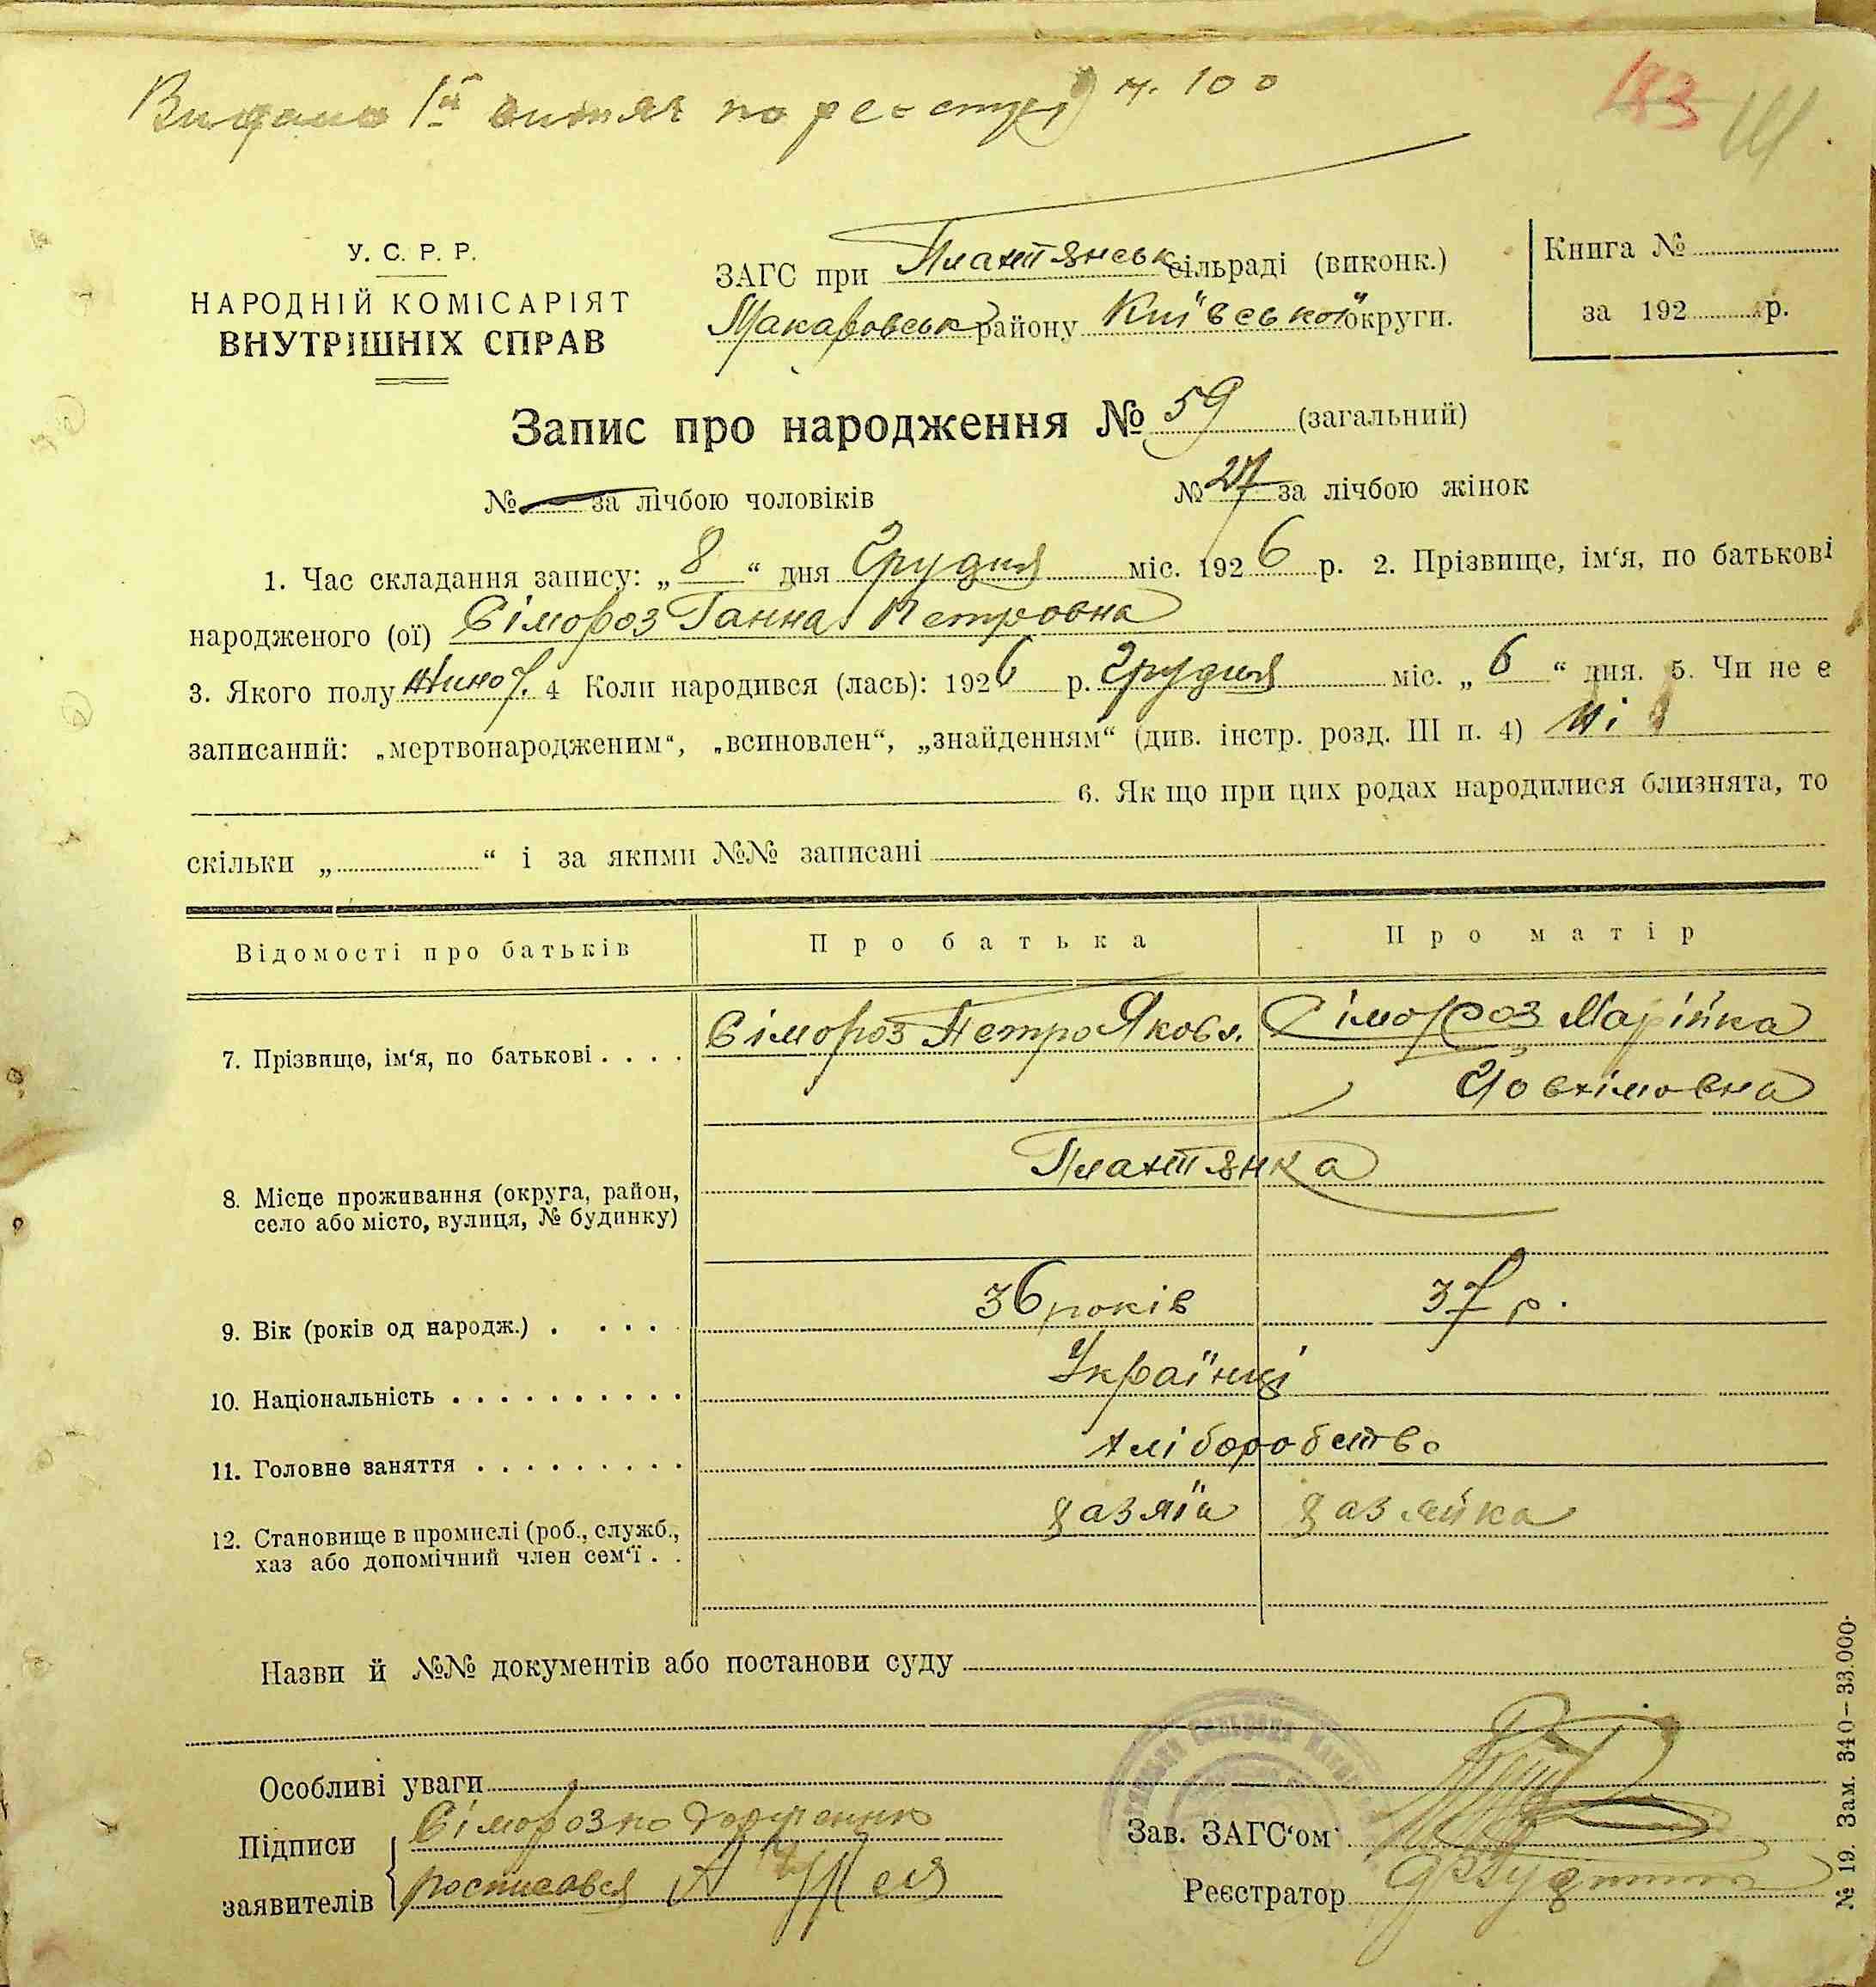 Видано 1й витяг по реестру ч. 100
183
У. С. Р. Р.
НАРОДНІЙ КОМІСАРІЯТ
ВНУТРІШНІХ СПРАВ
ЗАГС при Плахтянськ сільраді (виконк.)
Макаровськ району Київської округи.
Книга №
за 192 р.
Запис про народження № 59 (загальний)
№ — за лічбою чоловіків № 27 за лічбою жінок
1. Час складання запису: „ 8 “ дня Грудня міс. 1926 р. 2. Прізвище, ім‘я, по батькові
народженого (ої) Сімороз Ганна Петровна
3. Якого полу жіноч. 4 Коли народився (лась): 1926 р. Грудня міс. „ 6 “ дня. 5. Чи не є
записаний: „мертвонародженим“, „всиновлен“, „знайденням“ (див. інстр. розд. III п. 4) Ні
6. Як що при цих родах народилися близнята, то
скільки „ “ і за якими №№ записані
Відомості про батьків Про батька Про матір
7. Прізвище, ім‘я, по батькові . . . . Сімороз Петро Яковл. Сімороз Марійка
Йовхімовна
Плахтянка
8. Місце проживання (округа, район,
село або місто, вулиця, № будинку)
9. Вік (років од народж.) . . . . 36 років 37 р.
10. Національність . . . . . . . . . . Українці
11. Головне заняття . . . . . . . . . хліборобство
12. Становище в промислі (роб., служб., хазяїн хазяйка
хаз або допомічний член сем‘ї . .
Назви й №№ документів або постанови суду
Особливі уваги
Підписи Сімороз по дорученню
заявителів росписався
Зав. ЗАГС‘ом
Реєстратор
№ 19. Зам. 340—33.000